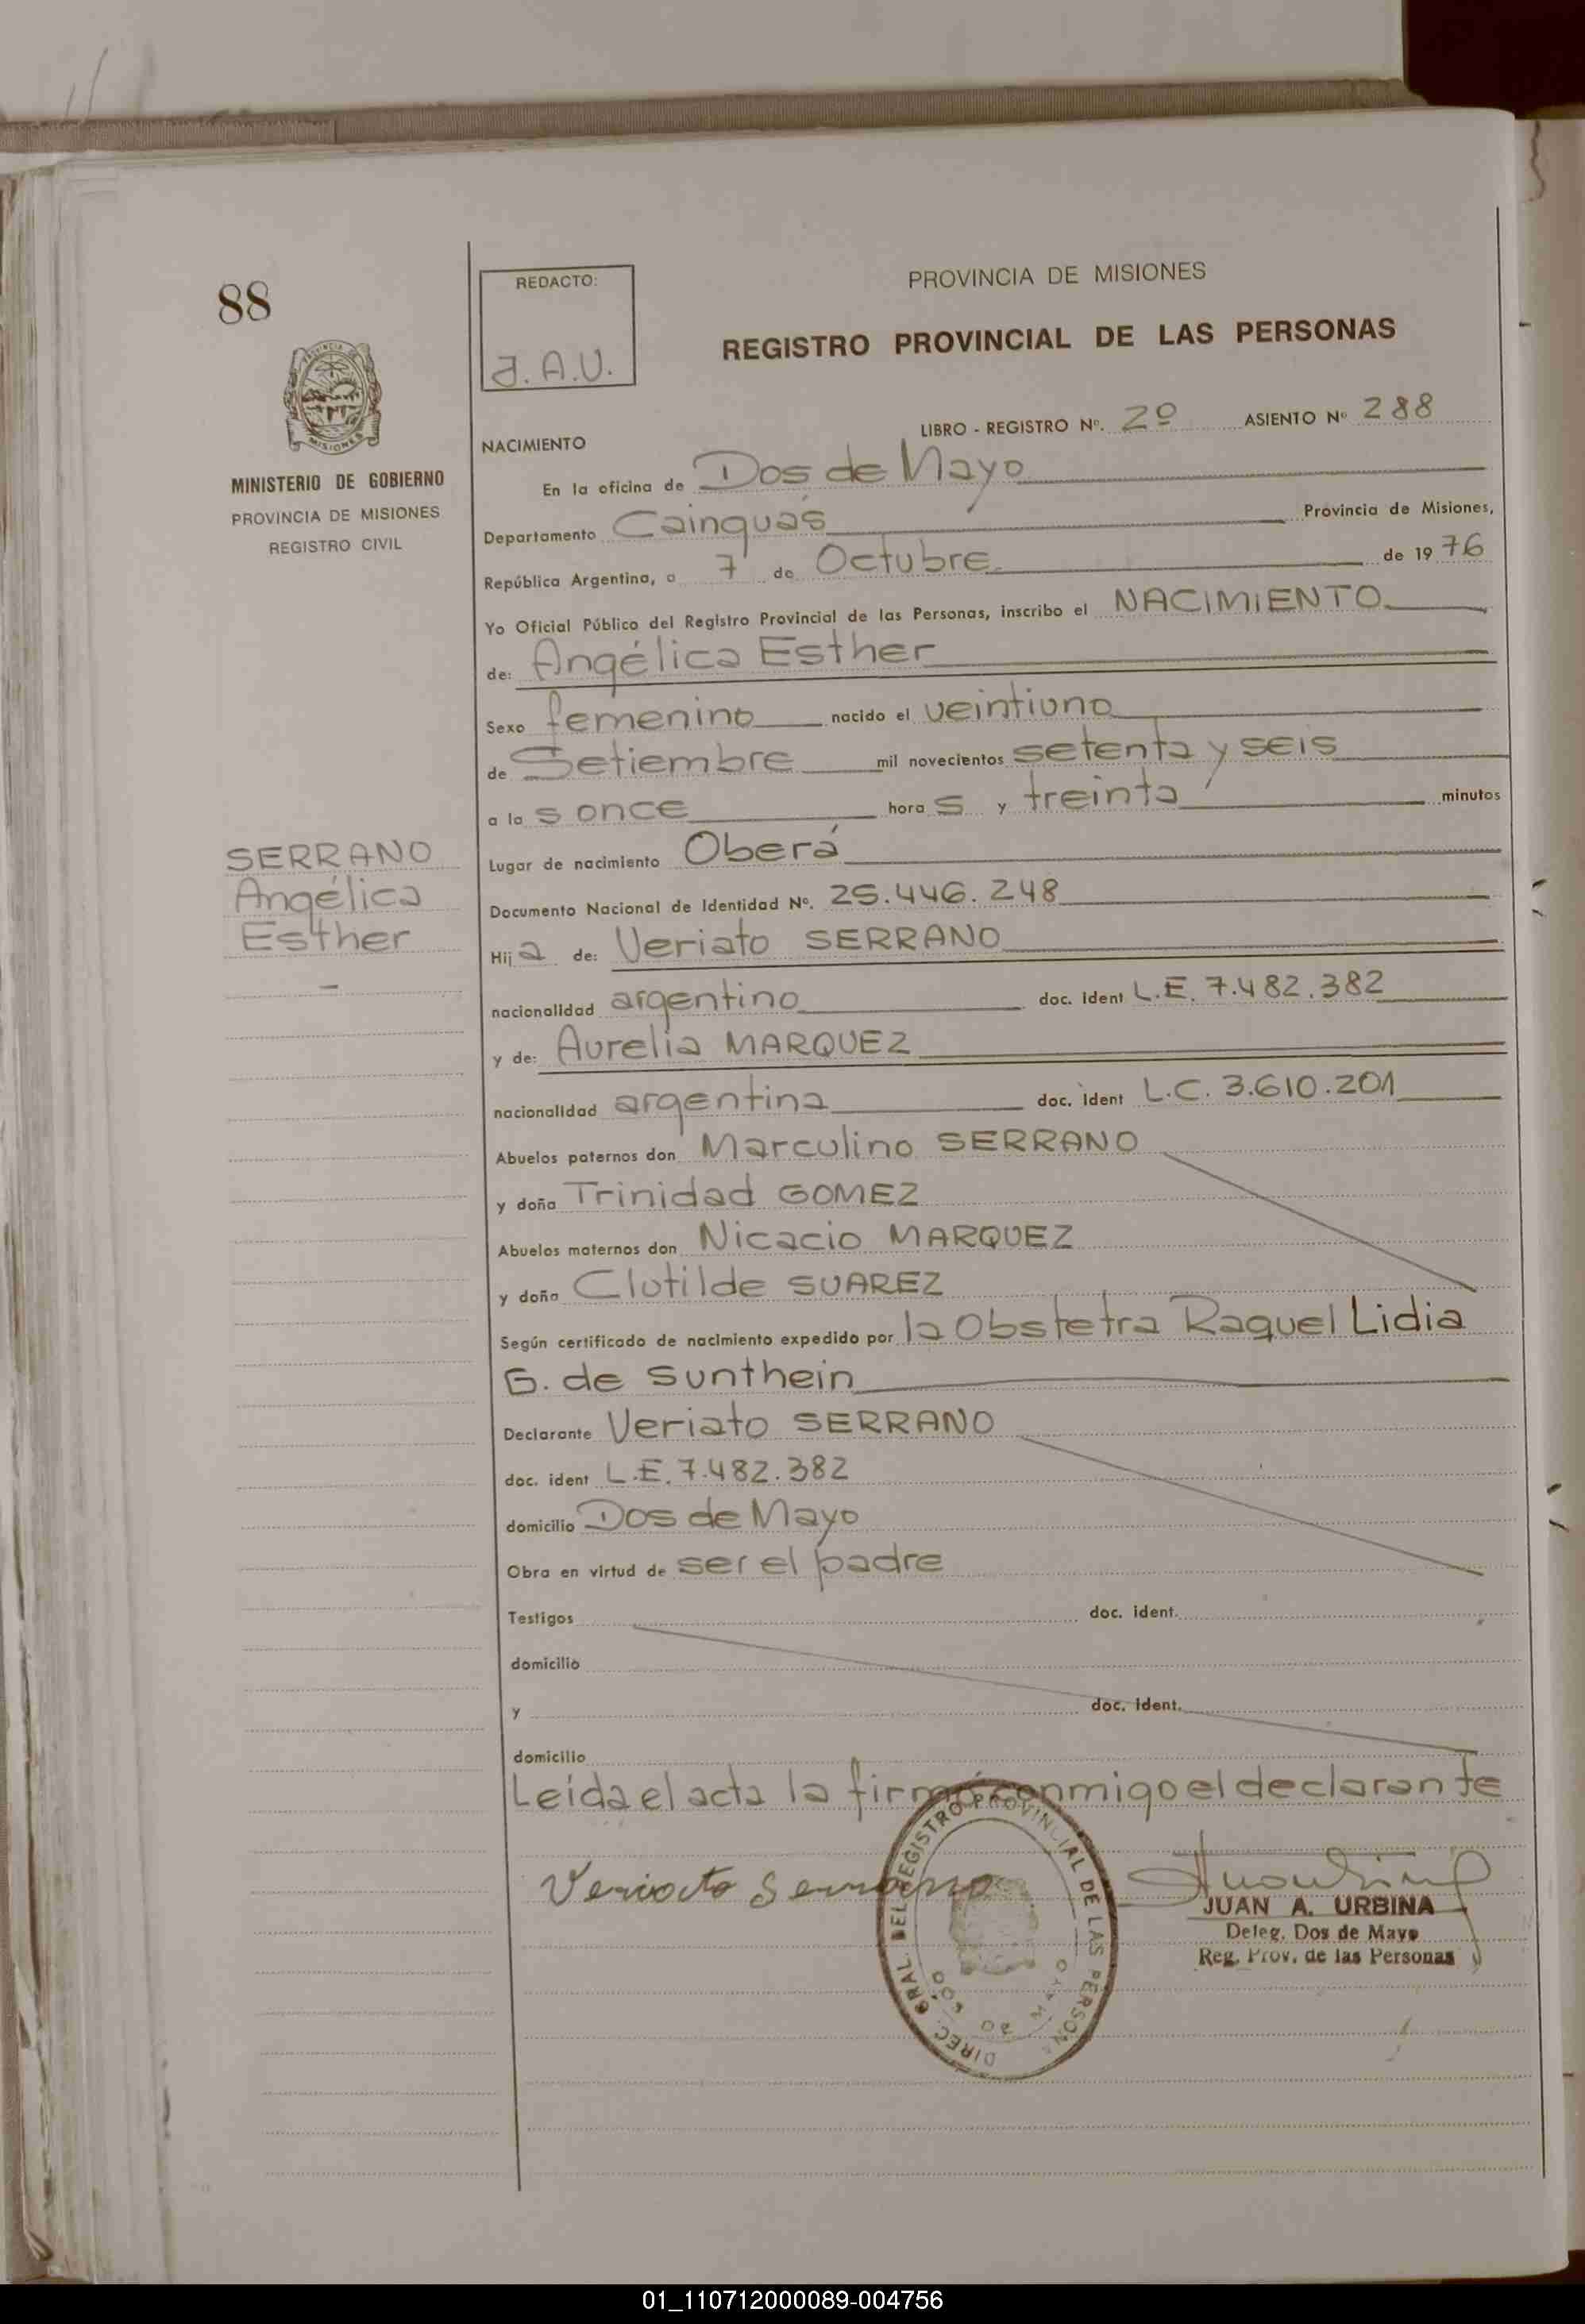 88
REDACTO:
J.A.U.
PROVINCIA DE MISIONES
REGISTRO PROVINCIAL DE LAS PERSONAS
PROVINCIA DE MISIONES
MINISTERIO DE GOBIERNO
PROVINCIA DE MISIONES
REGISTRO CIVIL
NACIMIENTO
LIBRO - REGISTRO Nº. 2º ASIENTO Nº 288
En la oficina de Dos de Mayo
Departamento Cainguás Provincia de Misiones,
República Argentina, a 7 de Octubre de 1976
Yo Oficial Público del Registro Provincial de las Personas, inscribo el NACIMIENTO
de: Angélica Esther
Sexo femenino nacido el veintiuno
de Setiembre mil novecientos setenta y seis
a las once horas y treinta minutos
SERRANO
Angélica
Esther
Lugar de nacimiento Oberá
Documento Nacional de Identidad Nº. 25.446.248
Hija de: Veriato SERRANO
nacionalidad argentino doc. ident L.E. 7.482.382
y de: Aurelia MARQUEZ
nacionalidad argentina doc. ident L.C. 3.610.201
Abuelos paternos don Marculino SERRANO
y doña Trinidad GOMEZ
Abuelos maternos don Nicacio MARQUEZ
y doña Clotilde SUAREZ
Según certificado de nacimiento expedido por la Obstetra Raquel Lidia
G. de Sunthein
Declarante Veriato SERRANO
doc. ident L.E. 7.482.382
domicilio Dos de Mayo
Obra en virtud de ser el padre
Testigos doc. ident.
domicilio
y doc. ident.
domicilio
Leída el acta la firmó conmigo el declarante
Veriato Serrano
DIREC. GRAL. DEL REGISTRO PROVINCIAL DE LAS PERSONAS
JUAN A. URBINA
Deleg. Dos de Mayo
Reg. Prov. de las Personas
01_110712000089-004756